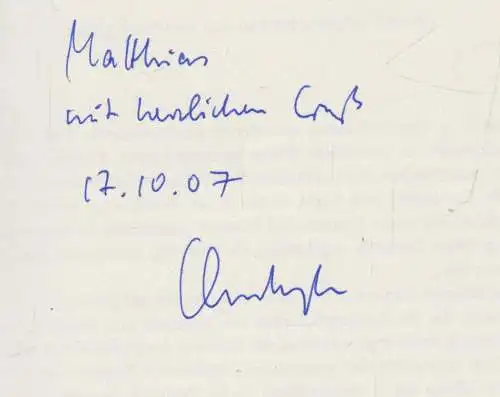 Matthias
mit herzlichem Gruß
17.10.07
Christoph